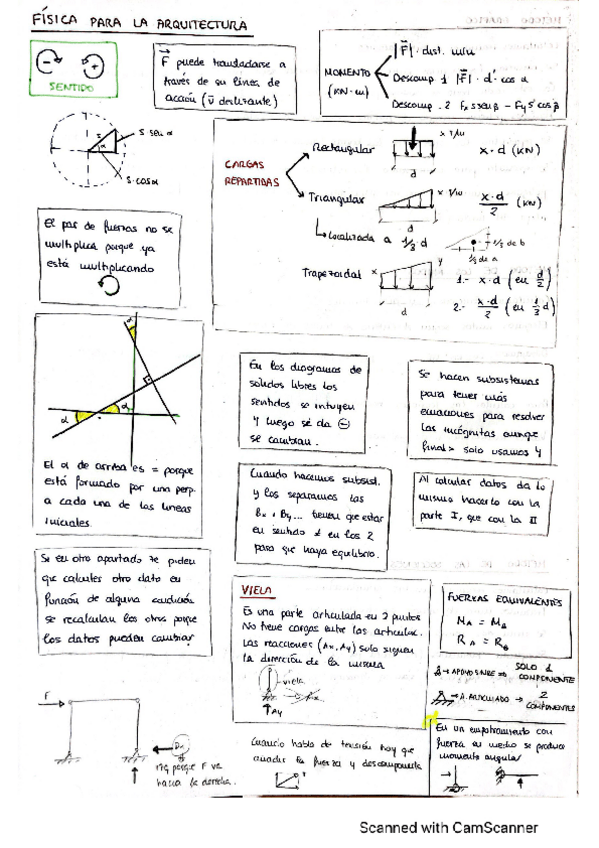 FÍSICA PARA LA ARQUITECTURA
SENTIDO
F puede trasladarse a
través de su línea de
acción (v deslizante)
MOMENTO
(KN·m)
|F| · dist. min
Descomp 1 |F| · d · cos α
Descomp. 2
S
α
S sen α
S·cosα
CARGAS
REPARTIDAS
Rectangular
x T/m
d
x·d (KN)
Triangular
x T/m
d
x·d
2
(KN)
Localizada a 1/3 d
1/3 de b
1/3 de a
Trapezoidal
x
y
d
1.- x·d (en d/2)
2.- x·d/2 (en 1/3 d)
El par de fuerzas no se
multiplica porque ya
está multiplicando
α
α
α
El α de arriba es = porque
está formado por una perp.
a cada una de las líneas
iniciales.
En los diagramas de
sólidos libres los
sentidos se intuyen
y luego si da ⊖
se cambian.
Se hacen subsistemas
para tener más
ecuaciones para resolver
las incógnitas aunque
final> solo usamos 4
Cuando hacemos subsist.
y los separamos las
Bx, By... tienen que estar
en sentido ≠ en los 2
para que haya equilibrio.
Al calcular datos da lo
mismo hacerlo con la
parte I, que con la II
Si en otro apartado te piden
que calcules otro dato en
función de alguna condición
se recalculan los otros porque
los datos pueden cambiar
VIELA
Es una parte articulada en 2 puntos
No tiene cargas entre las articulac.
Las reacciones (Ax, Ay) solo siguen
la dirección de la misma
viela
Ay
FUERZAS EQUIVALENTES
MA = MB
RA = RB
APOYO SIMPLE ⇒ SOLO 1
COMPONENTE
A. ARTICULADO → 2
COMPONENTES
F
Dx
porque F va
hacia la derecha.
Cuando habla de tensión hay que
añadir la fuerza y descomponerla
T
En un empotramiento con
fuerza en medio se produce
momento angular
Scanned with CamScanner